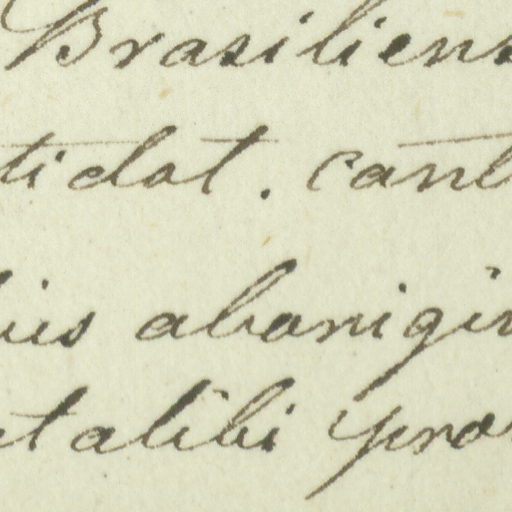 Brasiliens
tidat. cant
ius aborigin
et alibi pro